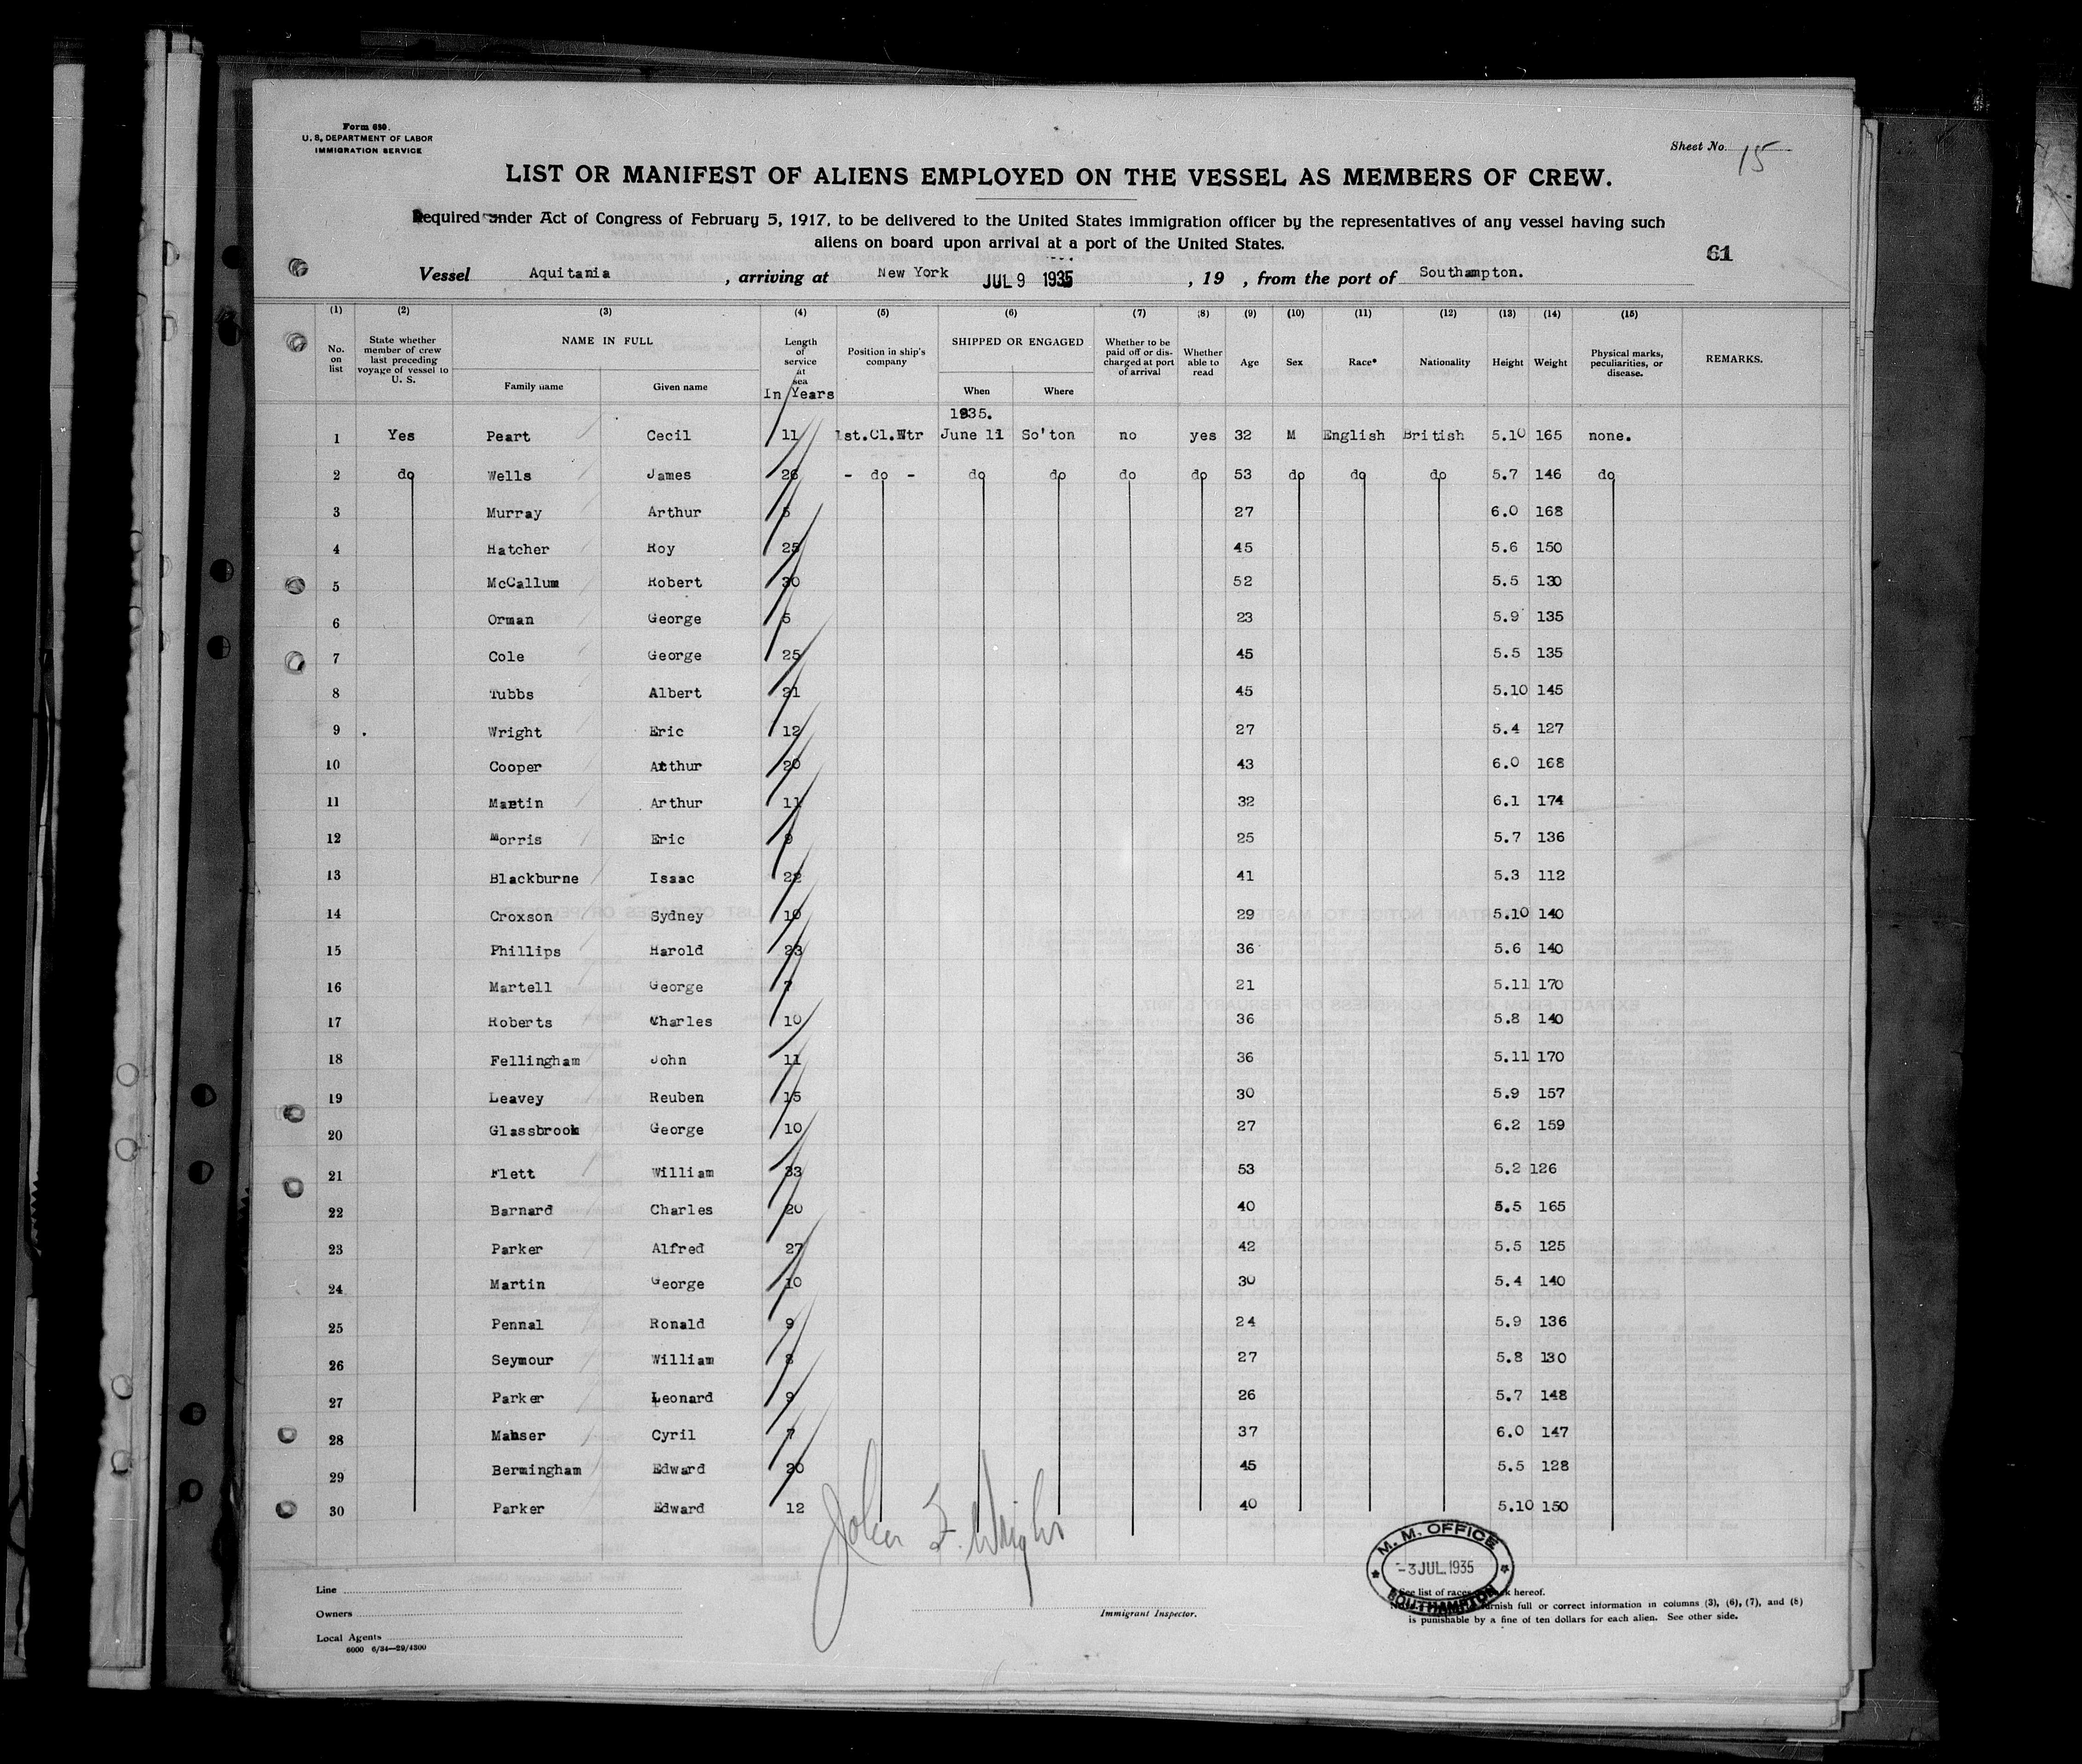 Form 680.
U. S. DEPARTMENT OF LABOR
IMMIGRATION SERVICE
Sheet No. 15
LIST OR MANIFEST OF ALIENS EMPLOYED ON THE VESSEL AS MEMBERS OF CREW.
Required under Act of Congress of February 5, 1917, to be delivered to the United States immigration officer by the representatives of any vessel having such
aliens on board upon arrival at a port of the United States.
61
Vessel Aquitania , arriving at New York JUL 9 1935 , 19 , from the port of Southampton.
(1) (2) (3) (4) (5) (6) (7) (8) (9) (10) (11) (12) (13) (14) (15)
No. on list State whether member of crew last preceding voyage of vessel to U. S. NAME IN FULL Family name Given name Length of service at sea In Years Position in ship's company SHIPPED OR ENGAGED When Where Whether to be paid off or discharged at port of arrival Whether able to read Age Sex Race* Nationality Height Weight Physical marks, peculiarities, or disease. REMARKS.
1935.
1 Yes Peart Cecil 11 1st.Cl.Wtr June 11 So'ton no yes 32 M English British 5.10 165 none.
2 do Wells James 26 - do - do do do do 53 do do do 5.7 146 do
3 Murray Arthur 5 27 6.0 168
4 Hatcher Roy 25 45 5.6 150
5 McCallum Robert 30 52 5.5 130
6 Orman George 5 23 5.9 135
7 Cole George 25 45 5.5 135
8 Tubbs Albert 21 45 5.10 145
9 Wright Eric 12 27 5.4 127
10 Cooper Arthur 20 43 6.0 168
11 Martin Arthur 11 32 6.1 174
12 Morris Eric 9 25 5.7 136
13 Blackburne Isaac 22 41 5.3 112
14 Croxson Sydney 10 29 5.10 140
15 Phillips Harold 23 36 5.6 140
16 Martell George 7 21 5.11 170
17 Roberts Charles 10 36 5.8 140
18 Fellingham John 11 36 5.11 170
19 Leavey Reuben 15 30 5.9 157
20 Glassbrook George 10 27 6.2 159
21 Flett William 33 53 5.2 126
22 Barnard Charles 20 40 5.5 165
23 Parker Alfred 27 42 5.5 125
24 Martin George 10 30 5.4 140
25 Pennal Ronald 9 24 5.9 136
26 Seymour William 8 27 5.8 130
27 Parker Leonard 9 26 5.7 148
28 Manser Cyril 7 37 6.0 147
29 Bermingham Edward 20 45 5.5 128
30 Parker Edward 12 40 5.10 150
John F. Wright
M. M. OFFICE
-3 JUL. 1935
SOUTHAMPTON
Line
Owners
Local Agents
6000 6/34—29/4300
Immigrant Inspector.
See list of races hereof.
furnish full or correct information in columns (3), (6), (7), and (8)
is punishable by a fine of ten dollars for each alien. See other side.